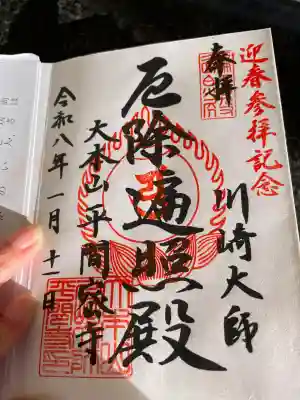 迎春参拝記念
川崎大師
奉拝
厄除遍照殿
大本山平間寺
令和八年一月十一日